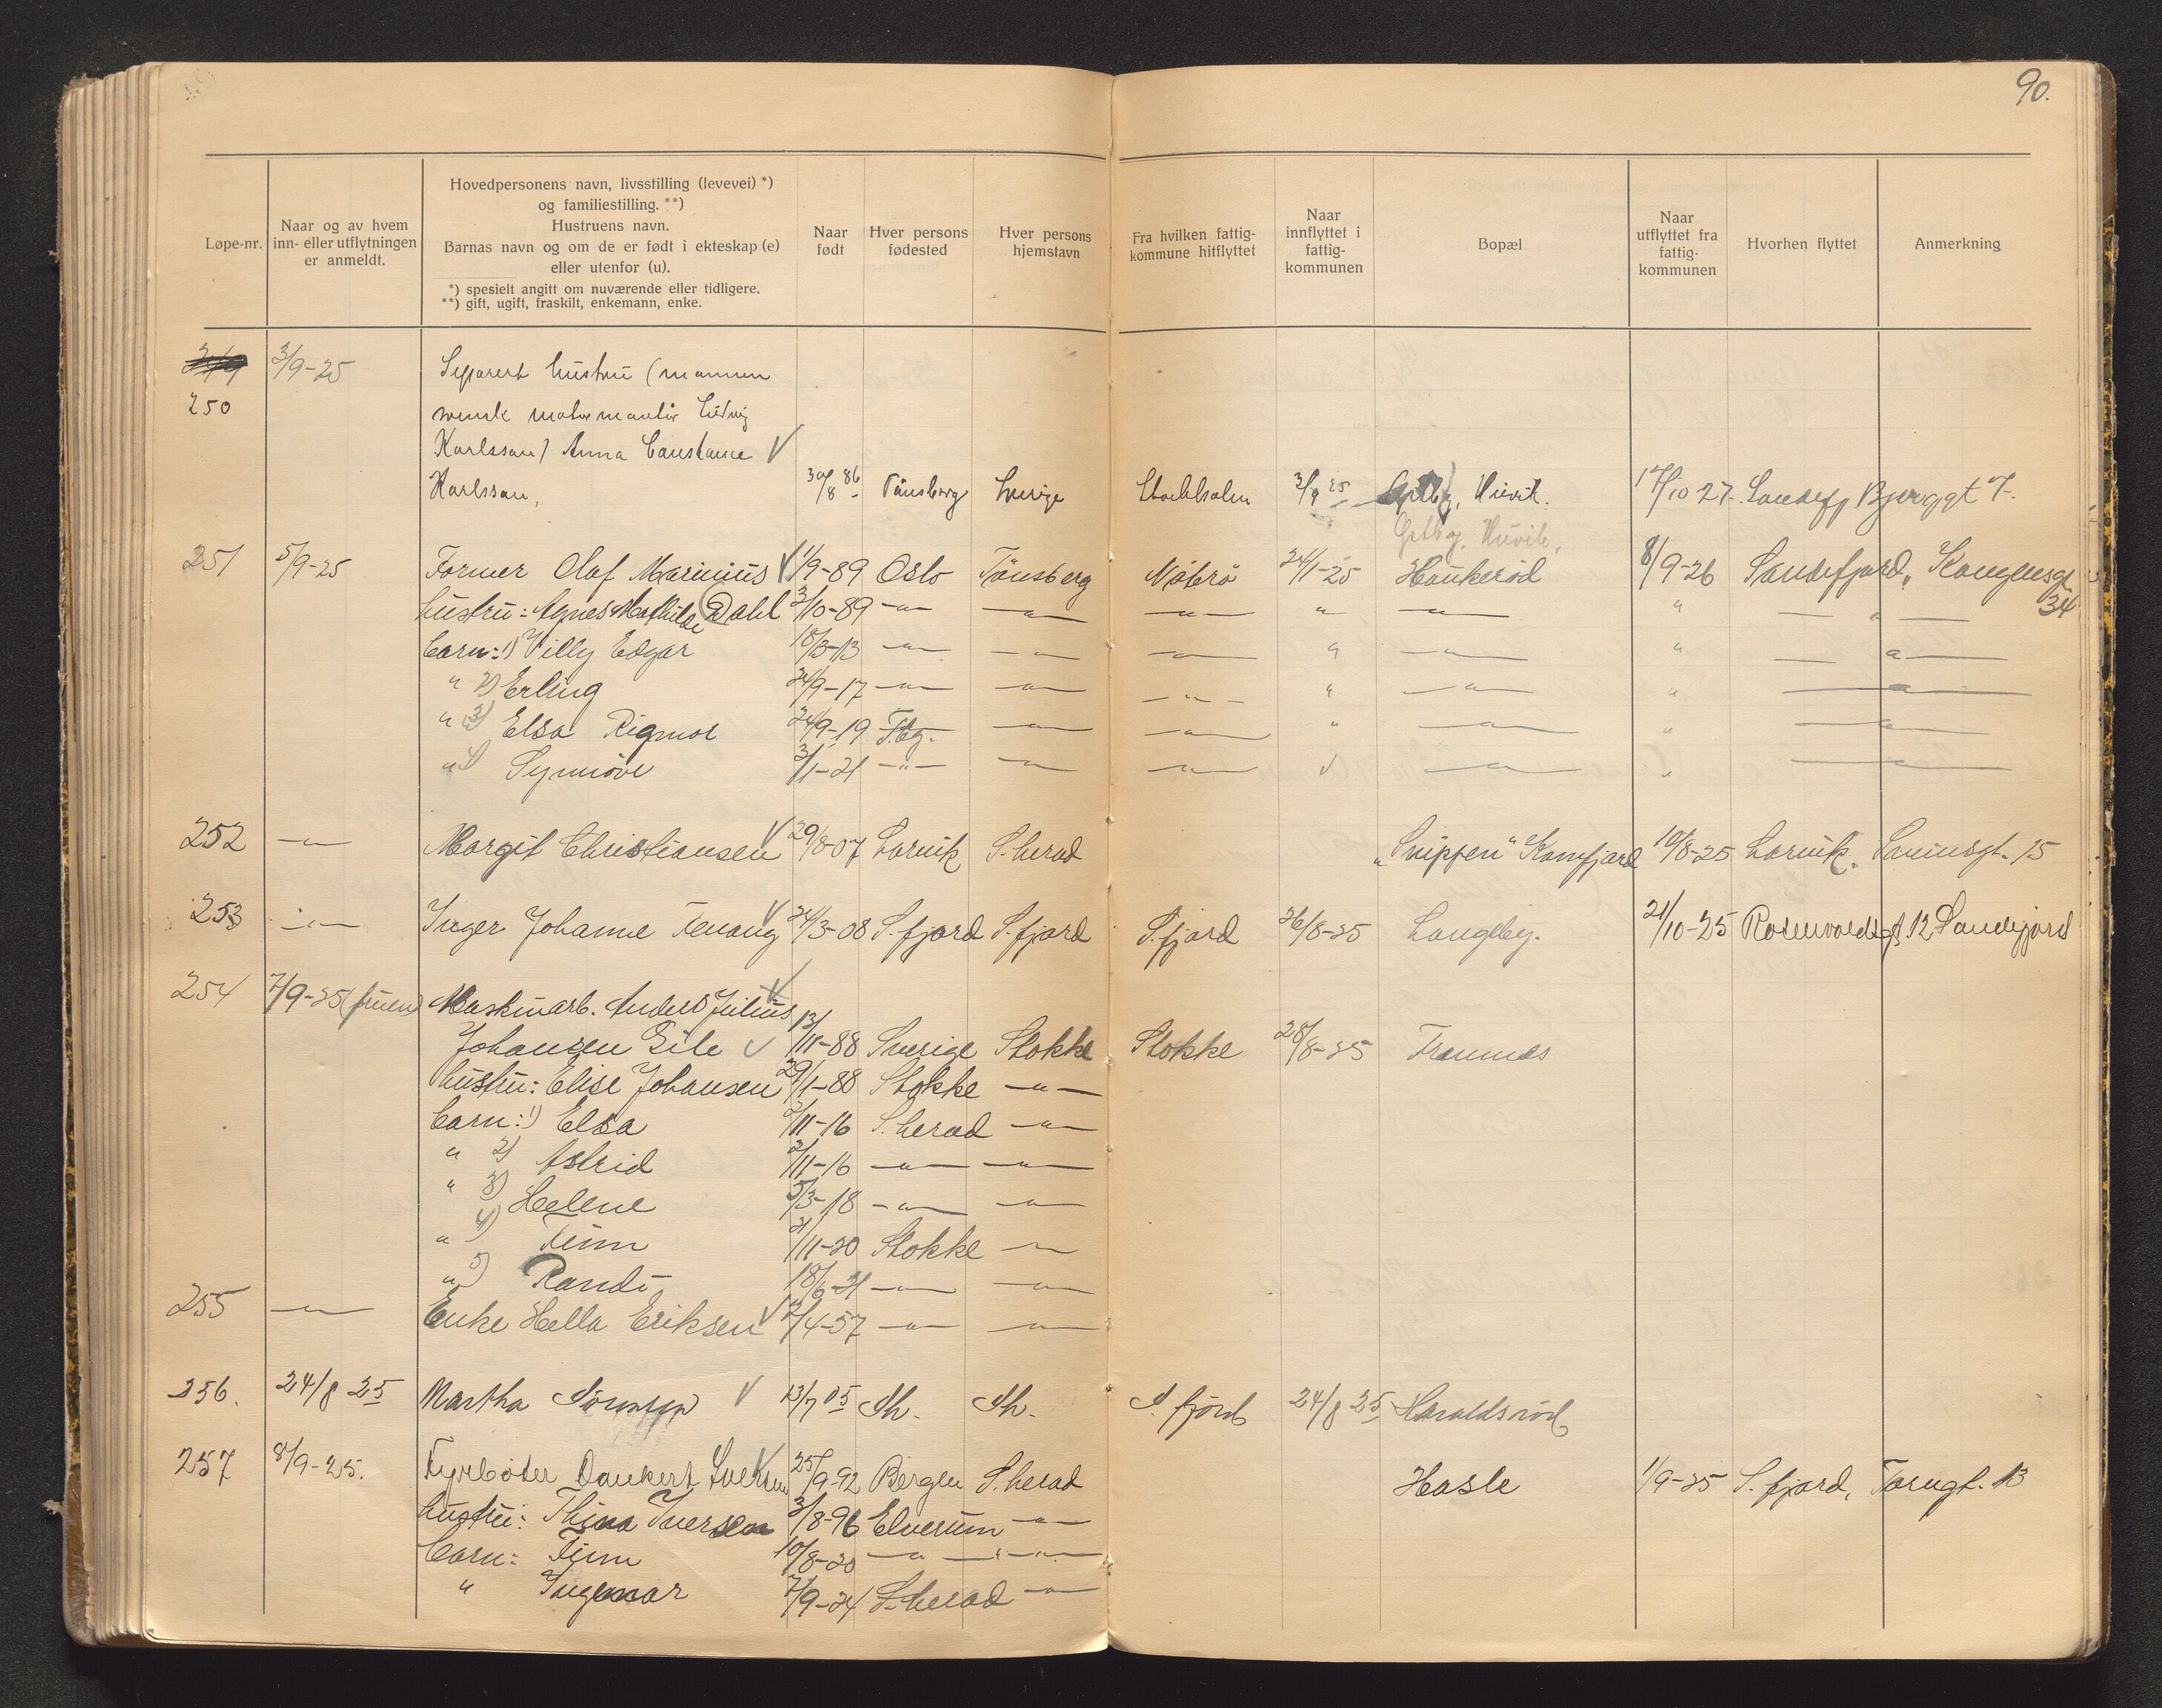 90.
Løpe-nr.
Naar og av hvem
inn- eller utflytningen
er anmeldt.
Hovedpersonens navn, livsstilling (levevei) *)
og familiestilling. **)
Hustruens navn.
Barnas navn og om de er født i ekteskap (e)
eller utenfor (u).
*) spesielt angitt om nuværende eller tidligere.
**) gift, ugift, fraskilt, enkemann, enke.
Naar
født
Hver persons
fødested
Hver persons
hjemstavn
Fra hvilken fattig-
kommune hitflyttet
Naar
innflyttet i
fattig-
kommunen
Bopæl
Naar
utflyttet fra
fattig-
kommunen
Hvorhen flyttet
Anmerkning
249 3/9-25 Separert hustru (mannen
250 svensk Ludvig
Karlsson) Anna Constance V
Karlsson, 30/8 86 Tønsberg Sverige Stockholm 3/9 25 Gytby, Huvik. 17/10 27 Sandefj Bjerggt 7.
Huvik,
251 5/9-25 Former Olaf Marinius V 1/9-89 Oslo Tønsberg Nøtrø 24/1-25 Haukerød 8/9-26 Sandefjord, Kongensgt
hustru: Agnes Mathilde Dahl 3/10-89 —"— —"— —"— " —"— " —"— 34
barn: 1) Villy Edgar 18/3-13 —"— —"— —"— " —"— " —"—
" 2) Erling 24/9-17 —"— —"— —"— " —"— " —"—
" 3) Elsa Rigmor 24/9-19 T.bg. —"— —"— " —"— " —"—
" 4) Synnøve 3/1-21 —"— —"— —"— " —"— " —"—
252 —"— Margit Christiansen V 29/8-07 Larvik S.herad „Snippen" Kamfjord 10/8-25 Larvik. 15
253 —"— Inger Johanne V 24/3-08 S.fjord S.fjord S.fjord 26/8-25 Langeby. 21/10-25 Rosenvoldsgt 12 Sandefjord
254 7/9-25 (fruen) Maskinarb. Anders Julius V
Johansen Eile V 13/11-88 Sverige Stokke Stokke 28/8-25 Framnes
hustru: Elise Johansen 29/1-88 Stokke —"—
barn: 1) Elsa 2/11-16 S.herad —"—
" 2) Astrid 2/11-16 —"— —"—
" 3) Helene 5/3-18 —"— —"—
" 4) Finn 21/11-20 Stokke —"—
" 5) Randi 18/6-21 —"— —"—
255 —"— Enke Hella Eriksen V 2/4-57 —"— —"—
256. 24/8 25 Martha Sörensen V 13/7 05 Sh. Sh. S. fjörd 24/8 25 Haraldsrød
257 8/9-25. Fyrbøter Dankert Iversen V 25/9-92 Bergen S.herad Hasle 1/9-25 S.fjord, Torvgt. 13
hustru: Thina Iversen 3/8-96 Elverum —"—
barn: Finn 10/8-20 —"— —"—
" Ingemar 7/9-24 S.herad —"—